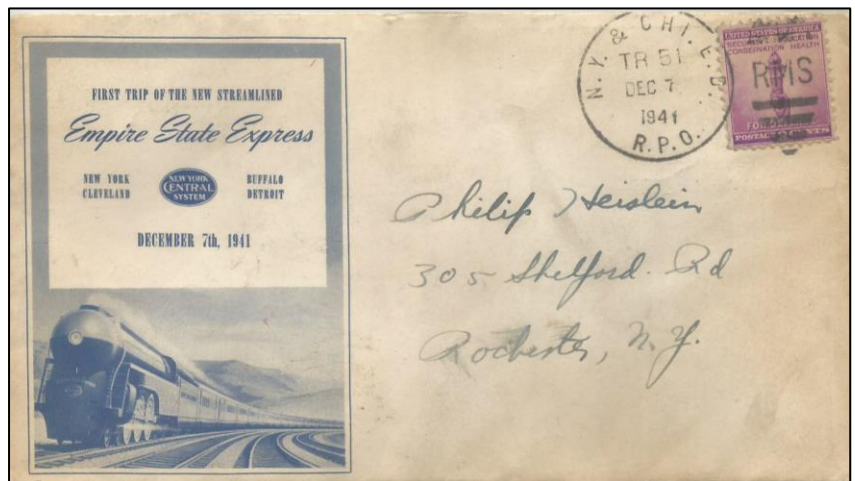 FIRST TRIP OF THE NEW STREAMLINED
Empire State Express
NEW YORK
CLEVELAND
NEW YORK
CENTRAL
SYSTEM
BUFFALO
DETROIT
DECEMBER 7th, 1941
N.Y. & CHI. E.D.
TR 51
DEC 7
1941
R.P.O.
UNITED STATES OF AMERICA
EDUCATION
CONSERVATION HEALTH
RMS
FOR
POSTAGE CENTS
Philip Heislein
305 Shelford. Rd
Rochester, N.Y.